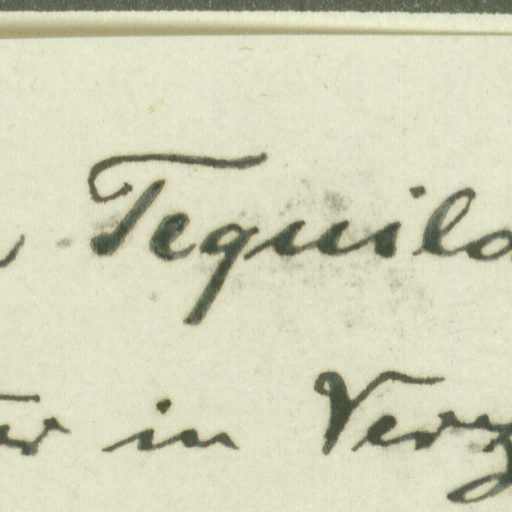 Tequila
in Verz